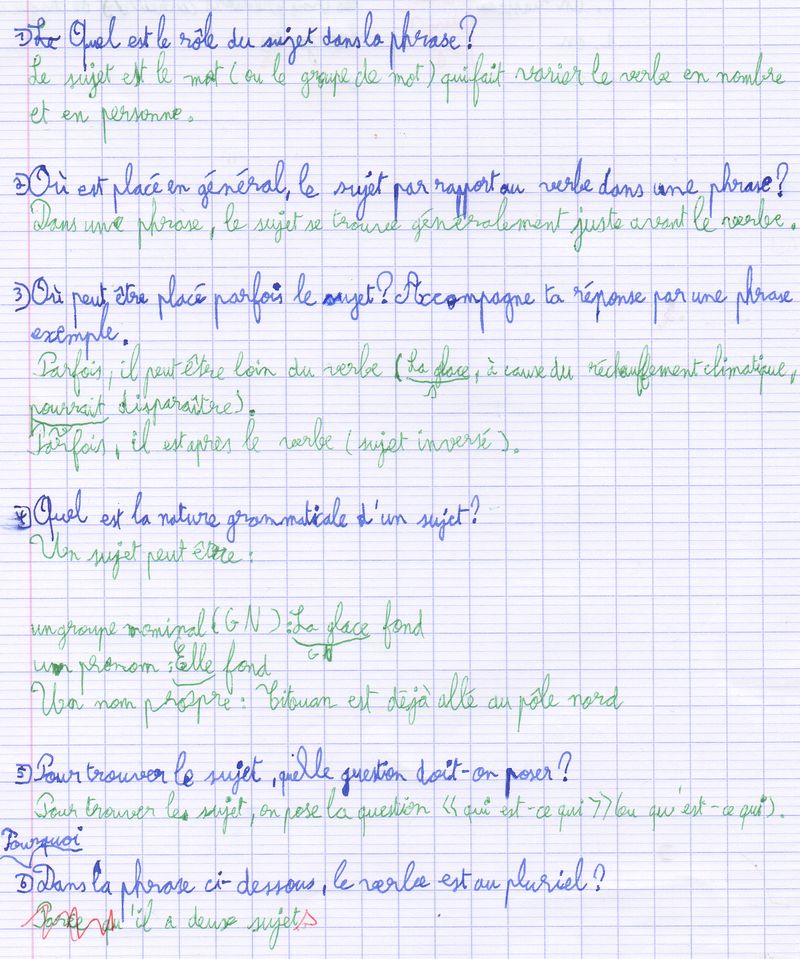 1) Le Quel est le rôle du sujet dans la phrase?
Le sujet est le mot (ou le groupe de mot) qui fait varier le verbe en nombre
et en personne.
2) Où est placé en général, le sujet par rapport au verbe dans une phrase?
Dans une phrase, le sujet se trouve généralement juste avant le verbe.
3) Où peut être placé parfois le sujet? Accompagne ta réponse par une phrase
exemple.
Parfois, il peut être loin du verbe (La glace, à cause du réchauffement climatique,
S
pourrait disparaître).
V
Parfois, il est après le verbe (sujet inversé).
4) Quel est la nature grammaticale d'un sujet?
Un sujet peut être:
un groupe nominal (GN): La glace fond
GN
un pronom: Elle fond
Un nom propre: Titouan est déjà allé au pôle nord
5) Pour trouver le sujet, quelle question doit-on poser?
Pour trouver le sujet, on pose la question << qui est-ce qui >> (ou qu'est-ce qui).
Pourquoi
6) Dans la phrase ci-dessous, le verbe est au pluriel?
Parce qu'il a deux sujets